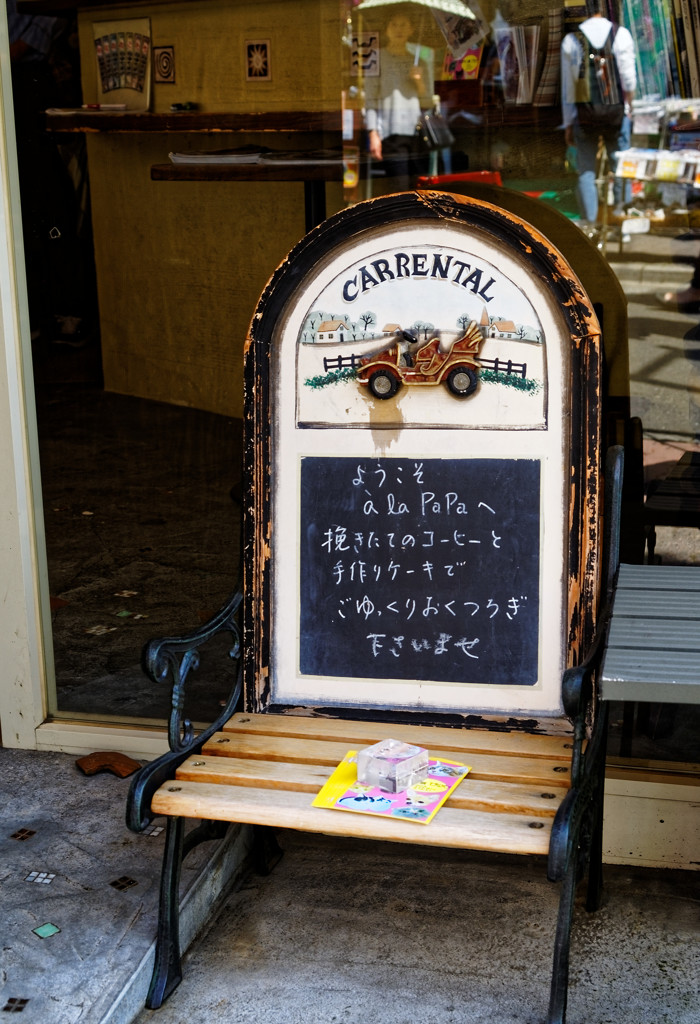 CARRENTAL
ようこそ
à la PaPa へ
挽きたてのコーヒーと
手作りケーキで
ごゆっくりおくつろぎ
下さいませ